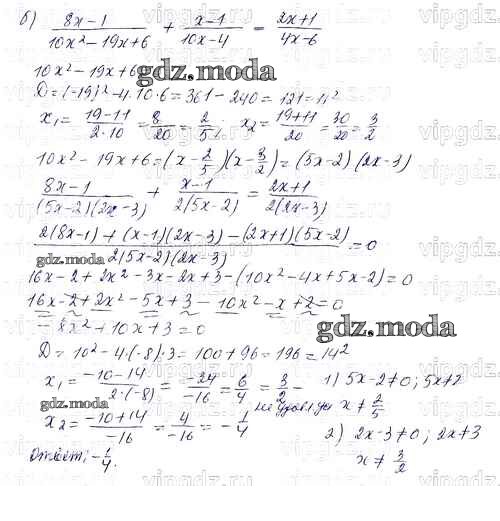 б) (8x-1)/(10x²-19x+6) + (x-1)/(10x-4) = (2x+1)/(4x-6)
10x²-19x+6
gdz.moda
D=(-19)²-4·10·6=361-240=121=11²
x₁=(19-11)/(2·10)=8/20=2/5; x₂=(19+11)/20=30/20=3/2
10x²-19x+6=(x-2/5)(x-3/2)=(5x-2)(2x-3)
(8x-1)/((5x-2)(2x-3)) + (x-1)/(2(5x-2)) = (2x+1)/(2(2x-3))
(2(8x-1)+(x-1)(2x-3)-(2x+1)(5x-2))/(2(5x-2)(2x-3))=0
gdz.moda
16x-2+2x²-3x-2x+3-(10x²-4x+5x-2)=0
16x-2+2x²-5x+3-10x²-x+2=0
-8x²+10x+3=0
gdz.moda
D=10²-4·(-8)·3=100+96=196=14²
x₁=(-10-14)/(2·(-8))=-24/-16=6/4=3/2-
1) 5x-2≠0; 5x≠2
gdz.moda
x≠2/5
x₂=(-10+14)/-16=4/-16=-1/4
2) 2x-3≠0; 2x≠3
x≠3/2
Ответ: -1/4.